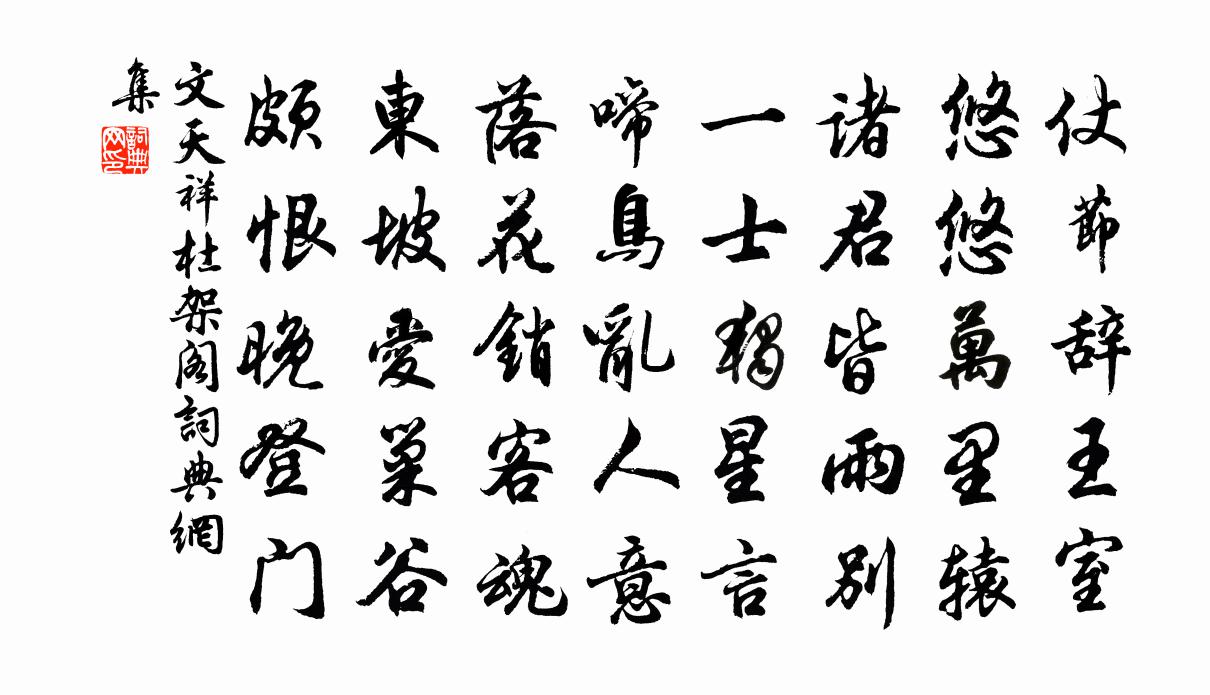 仗節辞王室
悠悠萬里辕
諸君皆雨别
一士獨星言
啼鳥亂人意
落花銷客魂
東坡愛巢谷
頗恨晚登门
文天祥杜架阁詞典網
集
詞典网印